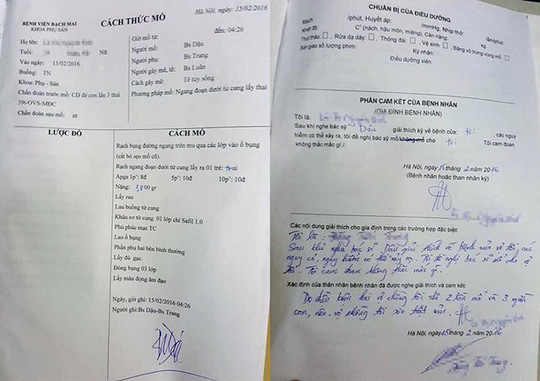 BỆNH VIỆN BẠCH MAI
KHOA PHỤ SẢN
CÁCH THỨC MỔ
Hà Nội, ngày 15/02/2016
đến: 04:26
Họ tên:
Tuổi: Nữ
Vào ngày: 15/02/2016
Buồng: TN
Khoa: Phụ - Sản
Chẩn đoán trước mổ: CD đẻ con lần 3 thai
39t-OVS-MDC
Chẩn đoán sau mổ: nt
Giờ mổ từ:
Người mổ: Bs Dậu
Người phụ: Bs Trang
Người gây mê, tê: Bs Luân
Cách gây mê: Tê tủy sống
Phương pháp mổ: Ngang đoạn dưới tử cung lấy thai
LƯỢC ĐỒ
CÁCH MỔ
Rạch bụng đường ngang trên mu qua các lớp vào ổ bụng
(cắt bỏ sẹo mổ cũ).
Rạch ngang đoạn dưới tử cung lấy ra 01 trẻ: trai
Apga 1p': 8đ 5p': 10đ 10p': 10đ
Nặng: 00 gr
Lấy rau
Lau buồng tử cung
Khâu cơ tử cung 01 lớp chỉ Safil 1.0
Phủ phúc mạc TC
Lau ổ bụng
Phần phụ hai bên bình thường
Lấy đủ gạc.
Đóng bụng 03 lớp
Lấy máu đọng âm đạo
Ngày, giờ ghi: 15/02/2016 04:26
Người ghi: Bs Dậu-Bs Trang
CHUẨN BỊ CỦA ĐIỀU DƯỠNG
Mạch /phút, Huyết áp: /mmHg, Nhịp thở: lần/phút
C° (nách, hậu môn, miệng), Cân nặng: kg
Thử tháo: Rửa dạ dày: Thông đái: Vệ sinh: Băng vô trùng vùng mổ
Bàn giao số lượng phim: Ký nhận
Điều dưỡng viên
PHẦN CAM KẾT CỦA BỆNH NHÂN
(GIA ĐÌNH BỆNH NHÂN)
Tôi là:
Sau khi nghe bác sỹ Dậu giải thích kỹ về bệnh của: tôi, các nguy
hiểm có thể xảy ra, tôi đề nghị bác sỹ mổ không mổ cho tôi Tôi cam đoan
không thắc mắc gì./.
Hà Nội, ngày 15 tháng 2 năm 2016
(Bệnh nhân hoặc thân nhân ký)
Các nội dung giải thích cho gia đình trong các trường hợp đặc biệt:
Tôi là:
Sau khi nghe bác sĩ Dậu giải thích về bệnh của vợ tôi, các
nguy cơ, nguy hiểm có thể xảy ra. Tôi đề nghị bác sĩ mổ cho vợ
tôi. Tôi cam đoan không thắc mắc gì.
Xác định của thân nhân bệnh nhân đã được nghe giải thích và cam kết:
Do điều kiện hai vợ chồng tôi đã 2 lần mổ và 3 người
con, nên vợ chồng tôi xin triệt sản.
Hà Nội, ngày 15 tháng 2 năm 2016